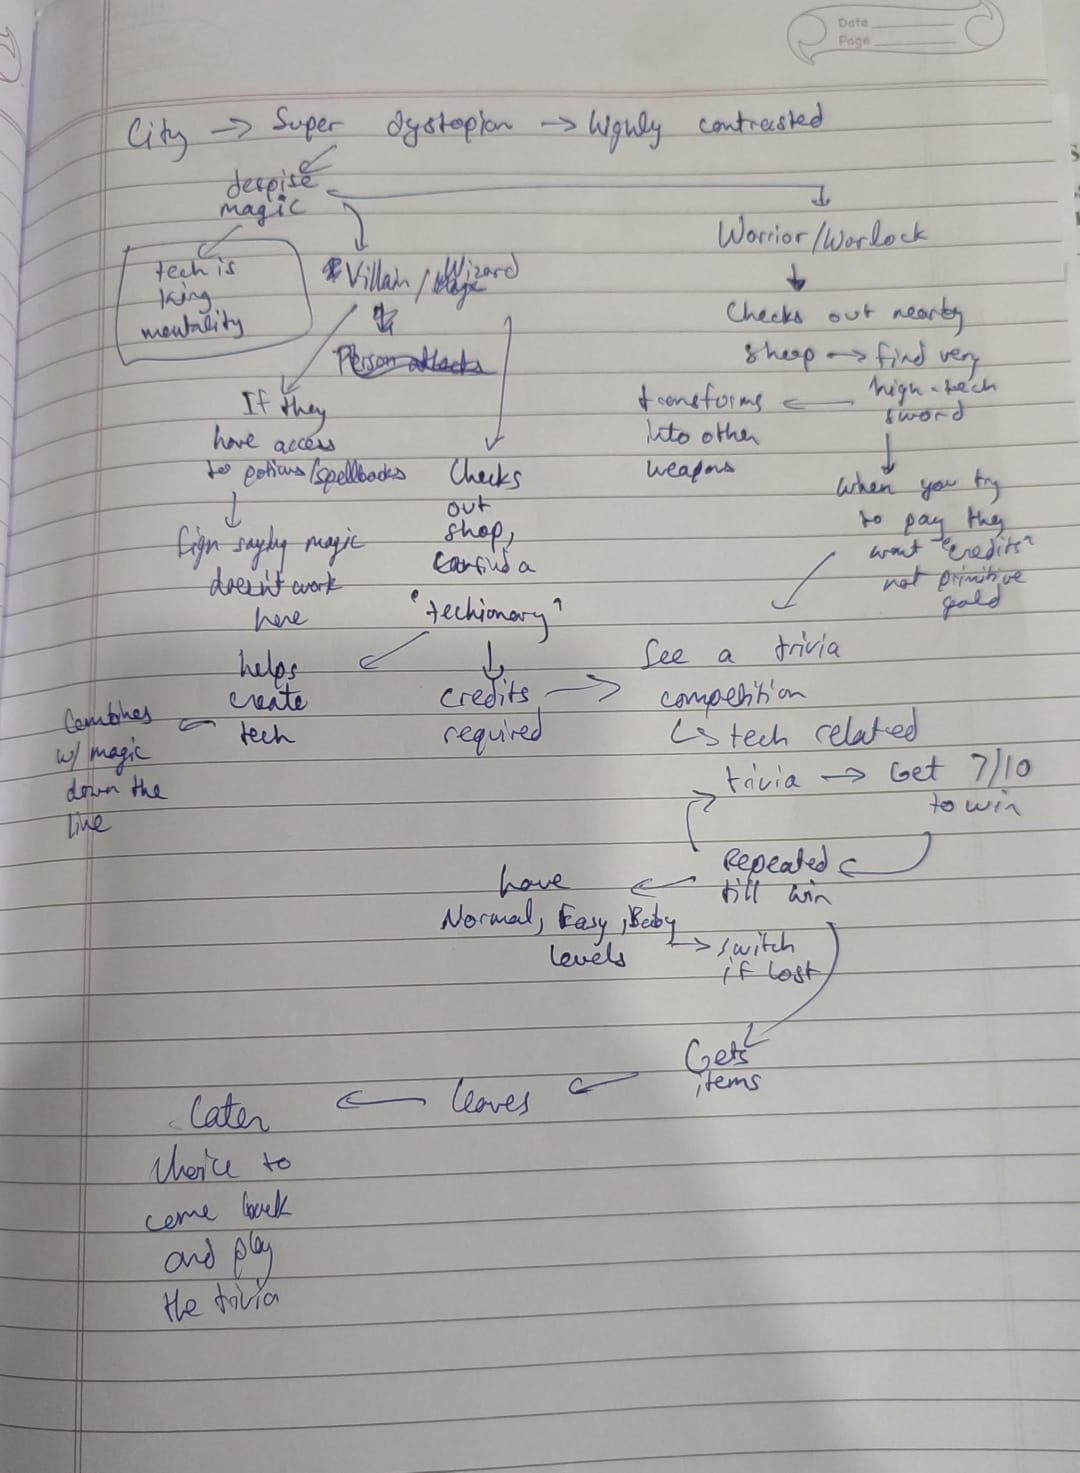 Date
Page
City → Super dystopian → highly contrasted
despise
magic
tech is
king
mentality
Villain / Wizard
Person attacks
If they
have access
to potions/spellbooks
Sign saying magic
doesn't work
here
Checks
out
shop,
can find a
"techionary"
helps
create
tech
Combines
w/ magic
down the
line
credits
required
Worrior/Warlock
Checks out nearby
shop → find very
high-tech
sword
transforms
into other
weapons
when you try
to pay they
want "credits"
not primitive
gold
See a trivia
competition
↳ tech related
trivia → Get 7/10
to win
Repeated
till win
have
Normal, Easy, Baby
levels
→ switch
if lost
Gets
items
leaves
Later
choice to
come back
and play
the trivia